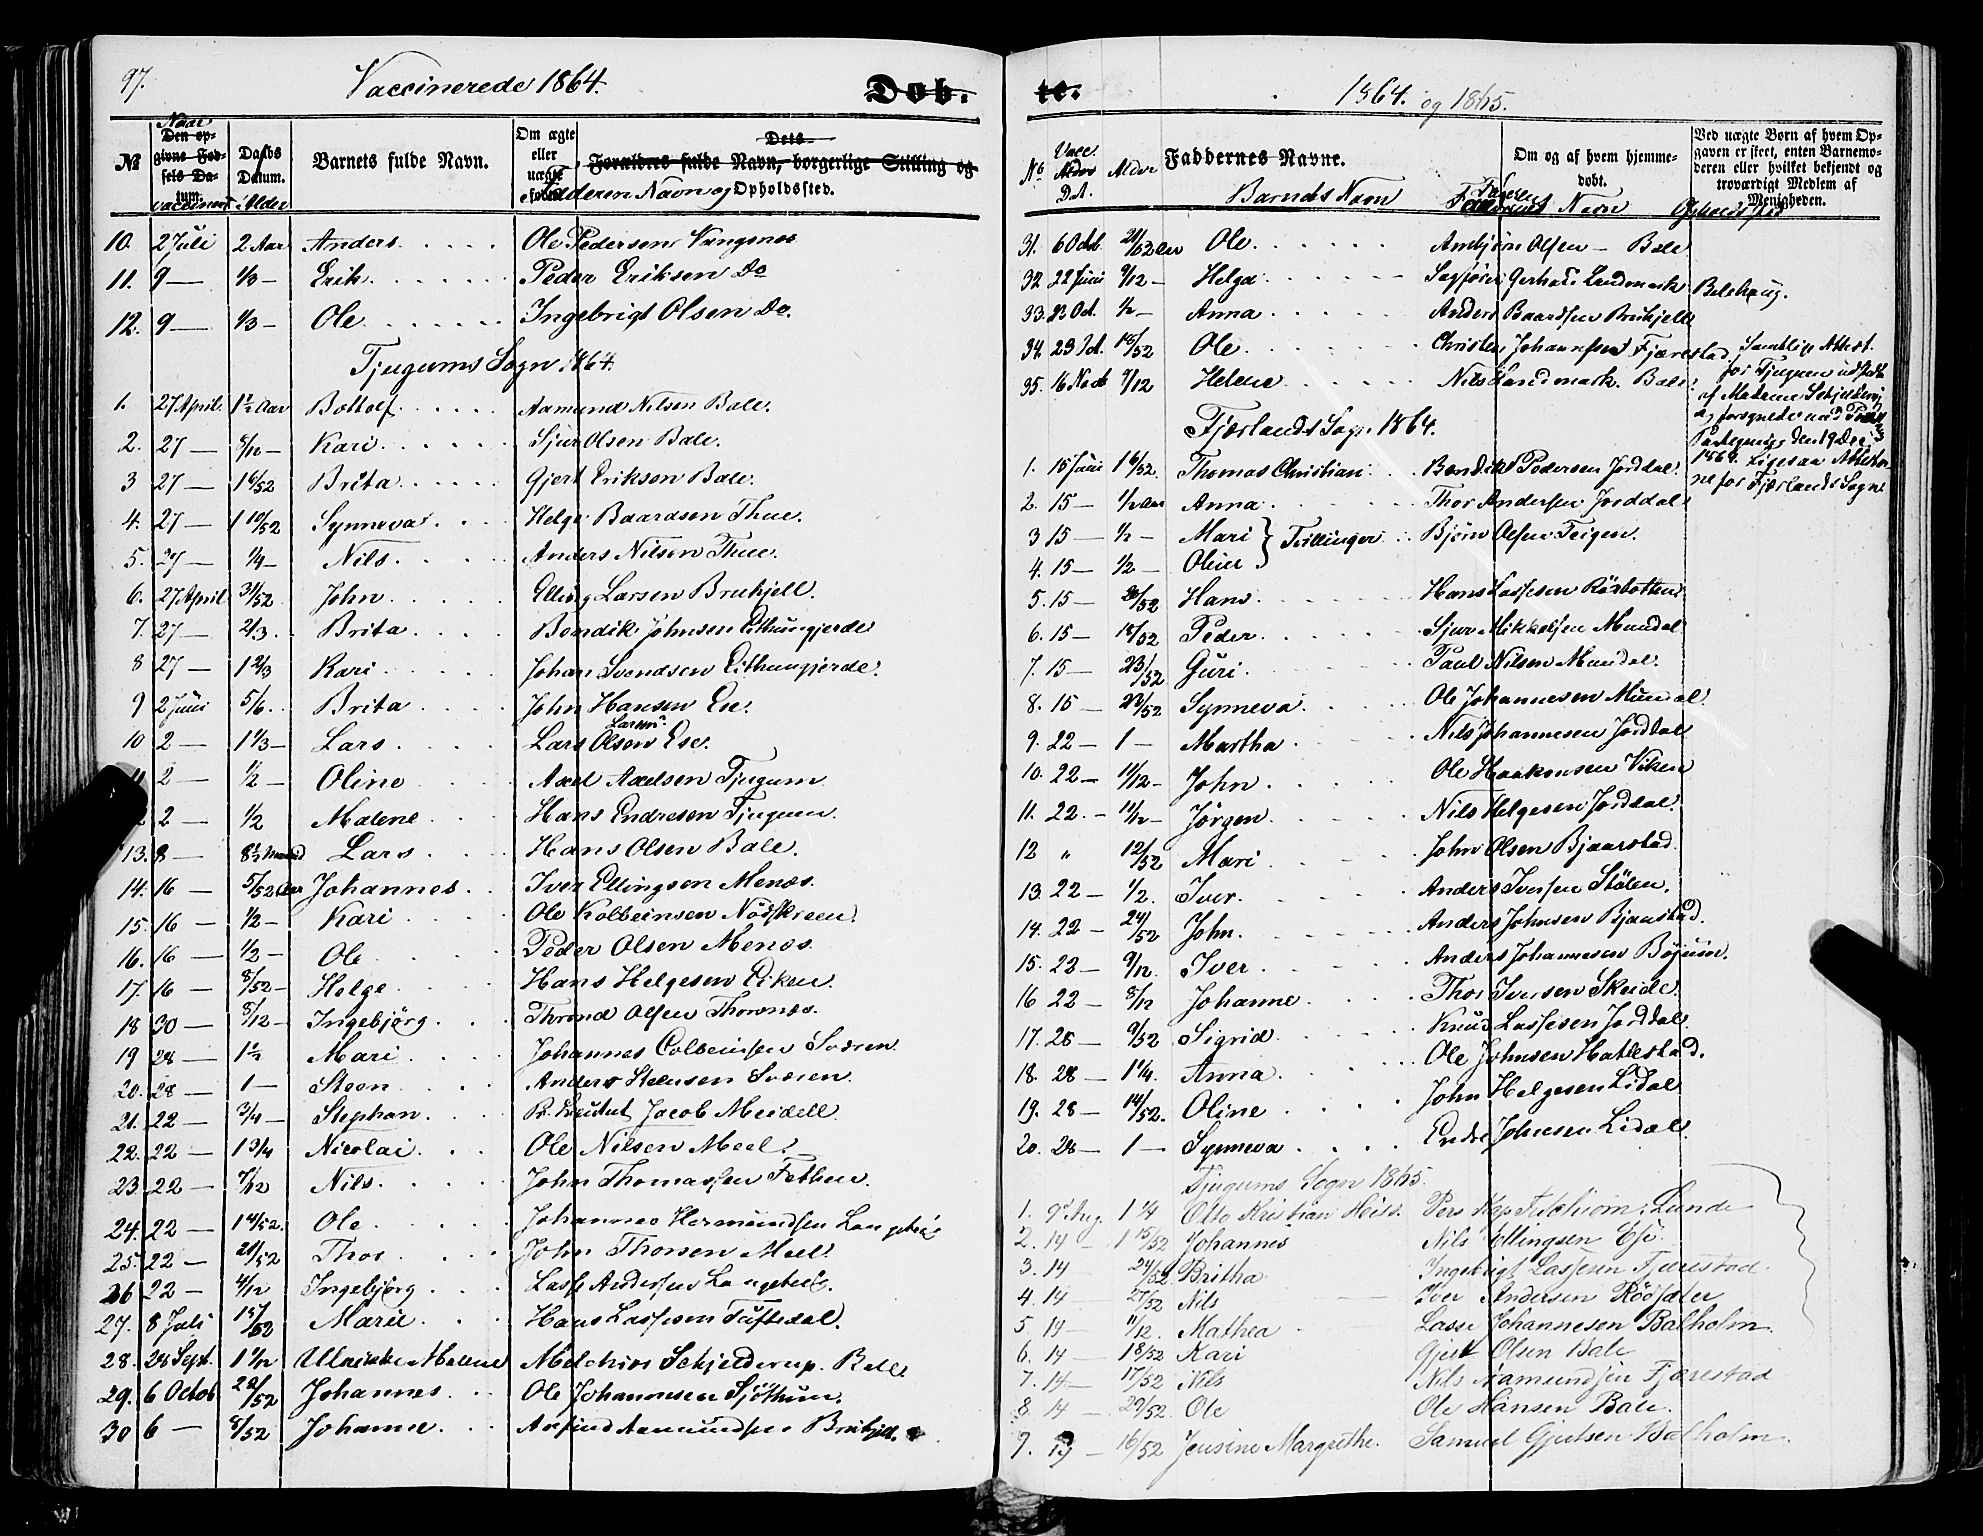 97.
Vaccinerede 1864.
Døb.
№
Naar
Den opgivne Fødsels Datum.
vaccineret
Daabs Datum.
Alder
Barnets fulde Navn.
Om ægte eller uægte
Dets
Forældres fulde Navn, borgerlige Stilling og Opholdssted.
Fadderen Navn og
10. 2 Juli 2 Aar Anders Ole Pedersen Vangsnes
11. 9 — 1/3 — Erik Peder Eriksen Do
12. 9 — 1/3 — Ole Ingebrigt Olsen Do.
Tjugums Sogn 1864.
1. 27 April. 1½ Aar Bottolf Aamund Nilsen Bale.
2. 27 — 8/12 — Kari Sjur Olsen Bale.
3 27 — 16/52 Brita Gjert Eriksen Bale.
4. 27 — 1 10/52 Synneva Helge Baardsen Thue.
5. 27 — 1/4 — Nils Anders Nilsen Thue.
6. 27 April 31/52 John Elling Larsen Brekjell.
7. 27 — 2/3 Brita Bendik Johnsen Eithungjerde
8 27 — 1 2/3 Kari Johan Svendsen Eithungjerde.
9 2 Juni 5/6. Brita John Hansen Ese.
10 2 — 1 1/3 — Lars Lars Olsen Larsen Ese.
11 2 — 1/2 — Oline Axel Axelsen Tjugum
2 — 1/2 Malene Hans Endresen Tjugum.
13. 8 — 8½ Maaned Lars Hans Olsen Bale.
14. 16 — 5/52 Aar Johannes Iver Ellingsen Menæs.
15 16 — 1/2 — Kari Ole Kolbeinsen Nødskreen.
16. 16 — 1/2 — Ole Peder Olsen Menæs.
17. 16 — 8/52 — Helge Hans Helgesen Eiken.
18 30 — 8/12 — Ingebjörg Thrond Olsen Thorsnæs.
19 28 — 1½ Mari Johannes Colbeinsen Sværen
20. 28 — 1 — Steen Anders Steensen Sværen.
21. 22 — 3/4 — Stephan Pr. Lieutnt Jacob Meidell
22. 22 — 1 3/4 Nicolai Ole Nilsen Meel.
23. 22 — 7/12 Nils John Thomassen Fethun.
24. 22 — 1 14/52. Ole Johannes Hermundsen Langetei
25. 22 — 21/52 Thor John Thorsen Meel.
26 22 — 4/12 Ingebjörg Lasse Andersen Langeteig.
27. 8 Juli 15/52 Marie Hans Lassesen Tuftedal.
28. 28 Sept. 1 1/12 Ulrikke Malene Melchior Schjelderup. Bale
29. 6 Octob 22/52 Johannes Ole Johannesen Sjøthun.
30 6 — 8/52 Johanne Arfind Aamundsen Brekjel.
te.
1864. og 1865.
No Vacc. Alder D.t. Alder
Faddernes Navne.
Barnets Navn
Om og af hvem hjemmedøbt.
Faderens Navn
Ved uægte Børn af hvem Opgaven er skeet, enten Barnemoderen eller hvilket bekjendt og troværdigt Medlem af Menigheden.
Opholdsted
31. 6 Octob 21/52 Aar Ole Ambjörn Olsen — Bale
32. 22 Juni 9/12 — Helga Sagfører Gerhard Landmark Balehaug.
33. 22 Oct. 1/2 — Anna Anders Baardsen Brekjell
34. 23 Oct. 18/52 Ole Christen Johannesen Fjærestad
35. 16 Novb 7/12 Helene Nils Landmark. Bale.
Samtlige Attest.
for Tjugum udstedt
af Madame Schjelderup
og forsynede med
Paategning den 19 Dec.
1864. Ligesaa Attester
ne for Fjærlands Sogn
Fjærlands Sogn 1864.
1. 15 Juni 16/52. Thomas Christian Bendikt Pedersen Jorddal
2. 15 — 1/2 Aar Anna Thor Andersen Jorddal
3 15 — 1/2 — Mari } Tvillinger Bjørn Olsen Teigen.
4. 15 — 1/2 — Oline
5. 15 — 28/52 Hans Hans Lassesen Røsbotten
6. 15 — 18/52 Peder Sjur Mikkelsen Mundal
7. 15 — 23/52 Guri Paul Nilsen Mundal.
8. 15 — 28/52 Synneva Ole Johannesen Mundal.
9. 22 — 1 — Martha Nils Johannesen Jorddal
10. 22 — 11/12 — John Ole Haakonsen Viken
11. 22. — 11/12 — Jörgen Nils Helgesen Jorddal.
12 " 12/52 Mari John Olsen Bjaarstad.
13. 22 — 1/2. Iver Anders Iversen Stølen.
14. 22 — 24/52 John. Anders Johnsen Bjaastad.
15. 22 — 9/12. Iver Anders Johannesen Bøjum.
16 22 — 8/12 Johanne Thor Iversen Skeide.
17. 28 — 9/52 Sigrid Knud Lassesen Jorddal
18. 28 — 1 1/4. Anna Ole Johnsen Hatlestad.
19. 28 — 14/52. Oline John Helgesen Lidal
20. 28 — 1 — Synneva Endre Johnsen Lidal.
Tjugums Sogn 1865.
1. 9 Aug. 1 1/4 Otto Kristian Pers Kap Lunde
2. 14 — 1 15/52 Johannes Nils Ellingsen Ese.
3. 14 24/52 Britha Ingebrigt Lassesen Fjærestad.
4. 14 — 27/52 Nils Iver Andersen Rösæter
5. 14 — 11/12. Mathea Lasse Johannesen Balholm.
6. 14 — 18/52 Kari Gjert Olsen Bale
7. 14 — 17/52 Nils Nils Aamundsen Fjærestad
8. 14 — 29/52. Ole Ole Hansen Bale.
9. — 16/52 Jensine Margrethe. Samuel Gjertsen Balholm.